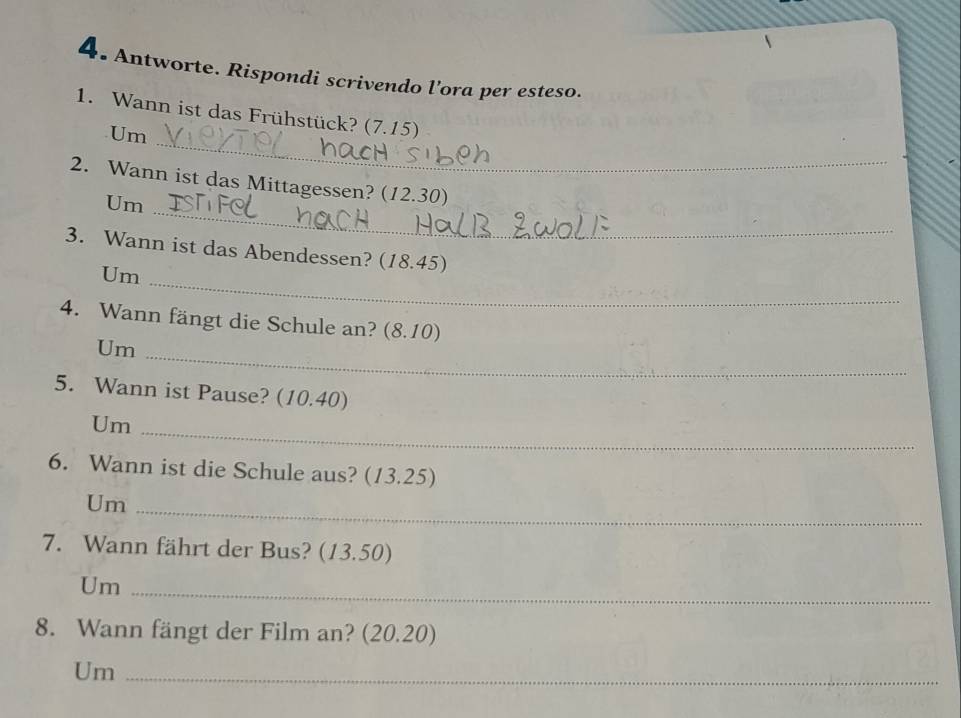 4. Antworte. Rispondi scrivendo l'ora per esteso.
1. Wann ist das Frühstück? (7.15)
Um Viertel nacH siben
2. Wann ist das Mittagessen? (12.30)
Um ISTiFel nacH HalB zwolF
3. Wann ist das Abendessen? (18.45)
Um
4. Wann fängt die Schule an? (8.10)
Um
5. Wann ist Pause? (10.40)
Um
6. Wann ist die Schule aus? (13.25)
Um
7. Wann fährt der Bus? (13.50)
Um
8. Wann fängt der Film an? (20.20)
Um